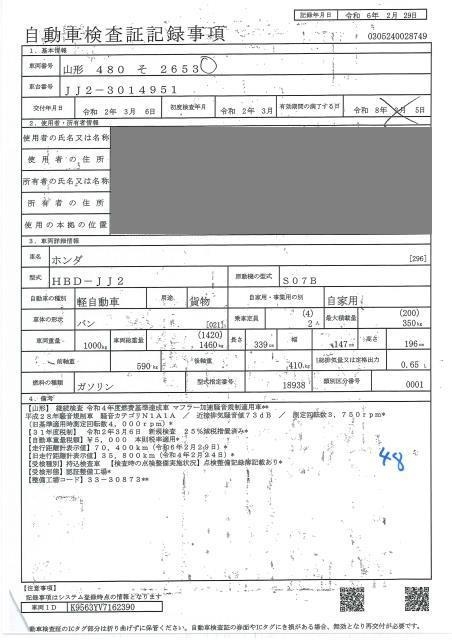 記録年月日 令和 6年 2月 29日
自動車検査証記録事項 0305240028749
1. 基本情報
車両番号 山形 480 そ 2653
車台番号 JJ2-3014951
交付年月日 令和 2年 3月 6日 初度検査年月 令和 2年 3月 有効期間の満了する日 令和 8年 3月 5日
2. 使用者・所有者情報
使用者の氏名又は名称
使用者の住所
所有者の氏名又は名称
所有者の住所
使用の本拠の位置
3. 車両詳細情報
車名 ホンダ [296]
型式 HBD-JJ2 原動機の型式 S07B
自動車の種別 軽自動車 用途 貨物 自家用・事業用の別 自家用
車体の形状 バン [021] 乗車定員 (4) 2人 最大積載量 (200) 350kg
車両重量 1000kg 車両総重量 (1420) 1460kg 長さ 339cm 幅 147cm 高さ 196cm
前軸重 590kg 後軸重 410kg 総排気量又は定格出力 0.65 L
燃料の種類 ガソリン 型式指定番号 18938 類別区分番号 0001
4. 備考
【山形】 継続検査 令和4年度燃費基準達成車 マフラー加速騒音規制適用車**
平成28年騒音規制車 騒音カテゴリN1A1A / 近接排気騒音値73dB / 測定回転数3,750rpm*
(旧基準適用時測定回転数4,000rpm)*
【31年度税制】 令和2年3月6日 新規検査 25%減税措置済み*
【自動車重量税額】¥5,000 本則税率適用*
【走行距離計表示値】70,400km(令和6年2月29日)*
【旧走行距離計表示値】35,800km(令和4年2月24日)*
【受検種別】持込検査車 【検査時の点検整備実施状況】点検整備記録簿記載あり*
【受検形態】認証整備工場*
【整備工場コード】33-30873**
48
【注意事項】
記録事項はシステム登録時点の情報となります
車両ID K9563YV7162390
自動車検査証のICタグ部分は折り曲げずに保管ください。自動車検査証の券面やICタグにき損がある場合、無効となり再交付が必要です。